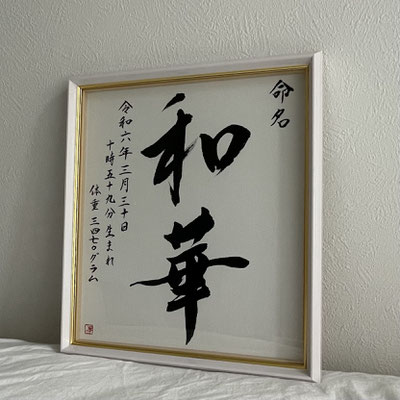 命名
和華
令和六年三月三十日
十時五十九分生まれ
体重三四七〇グラム